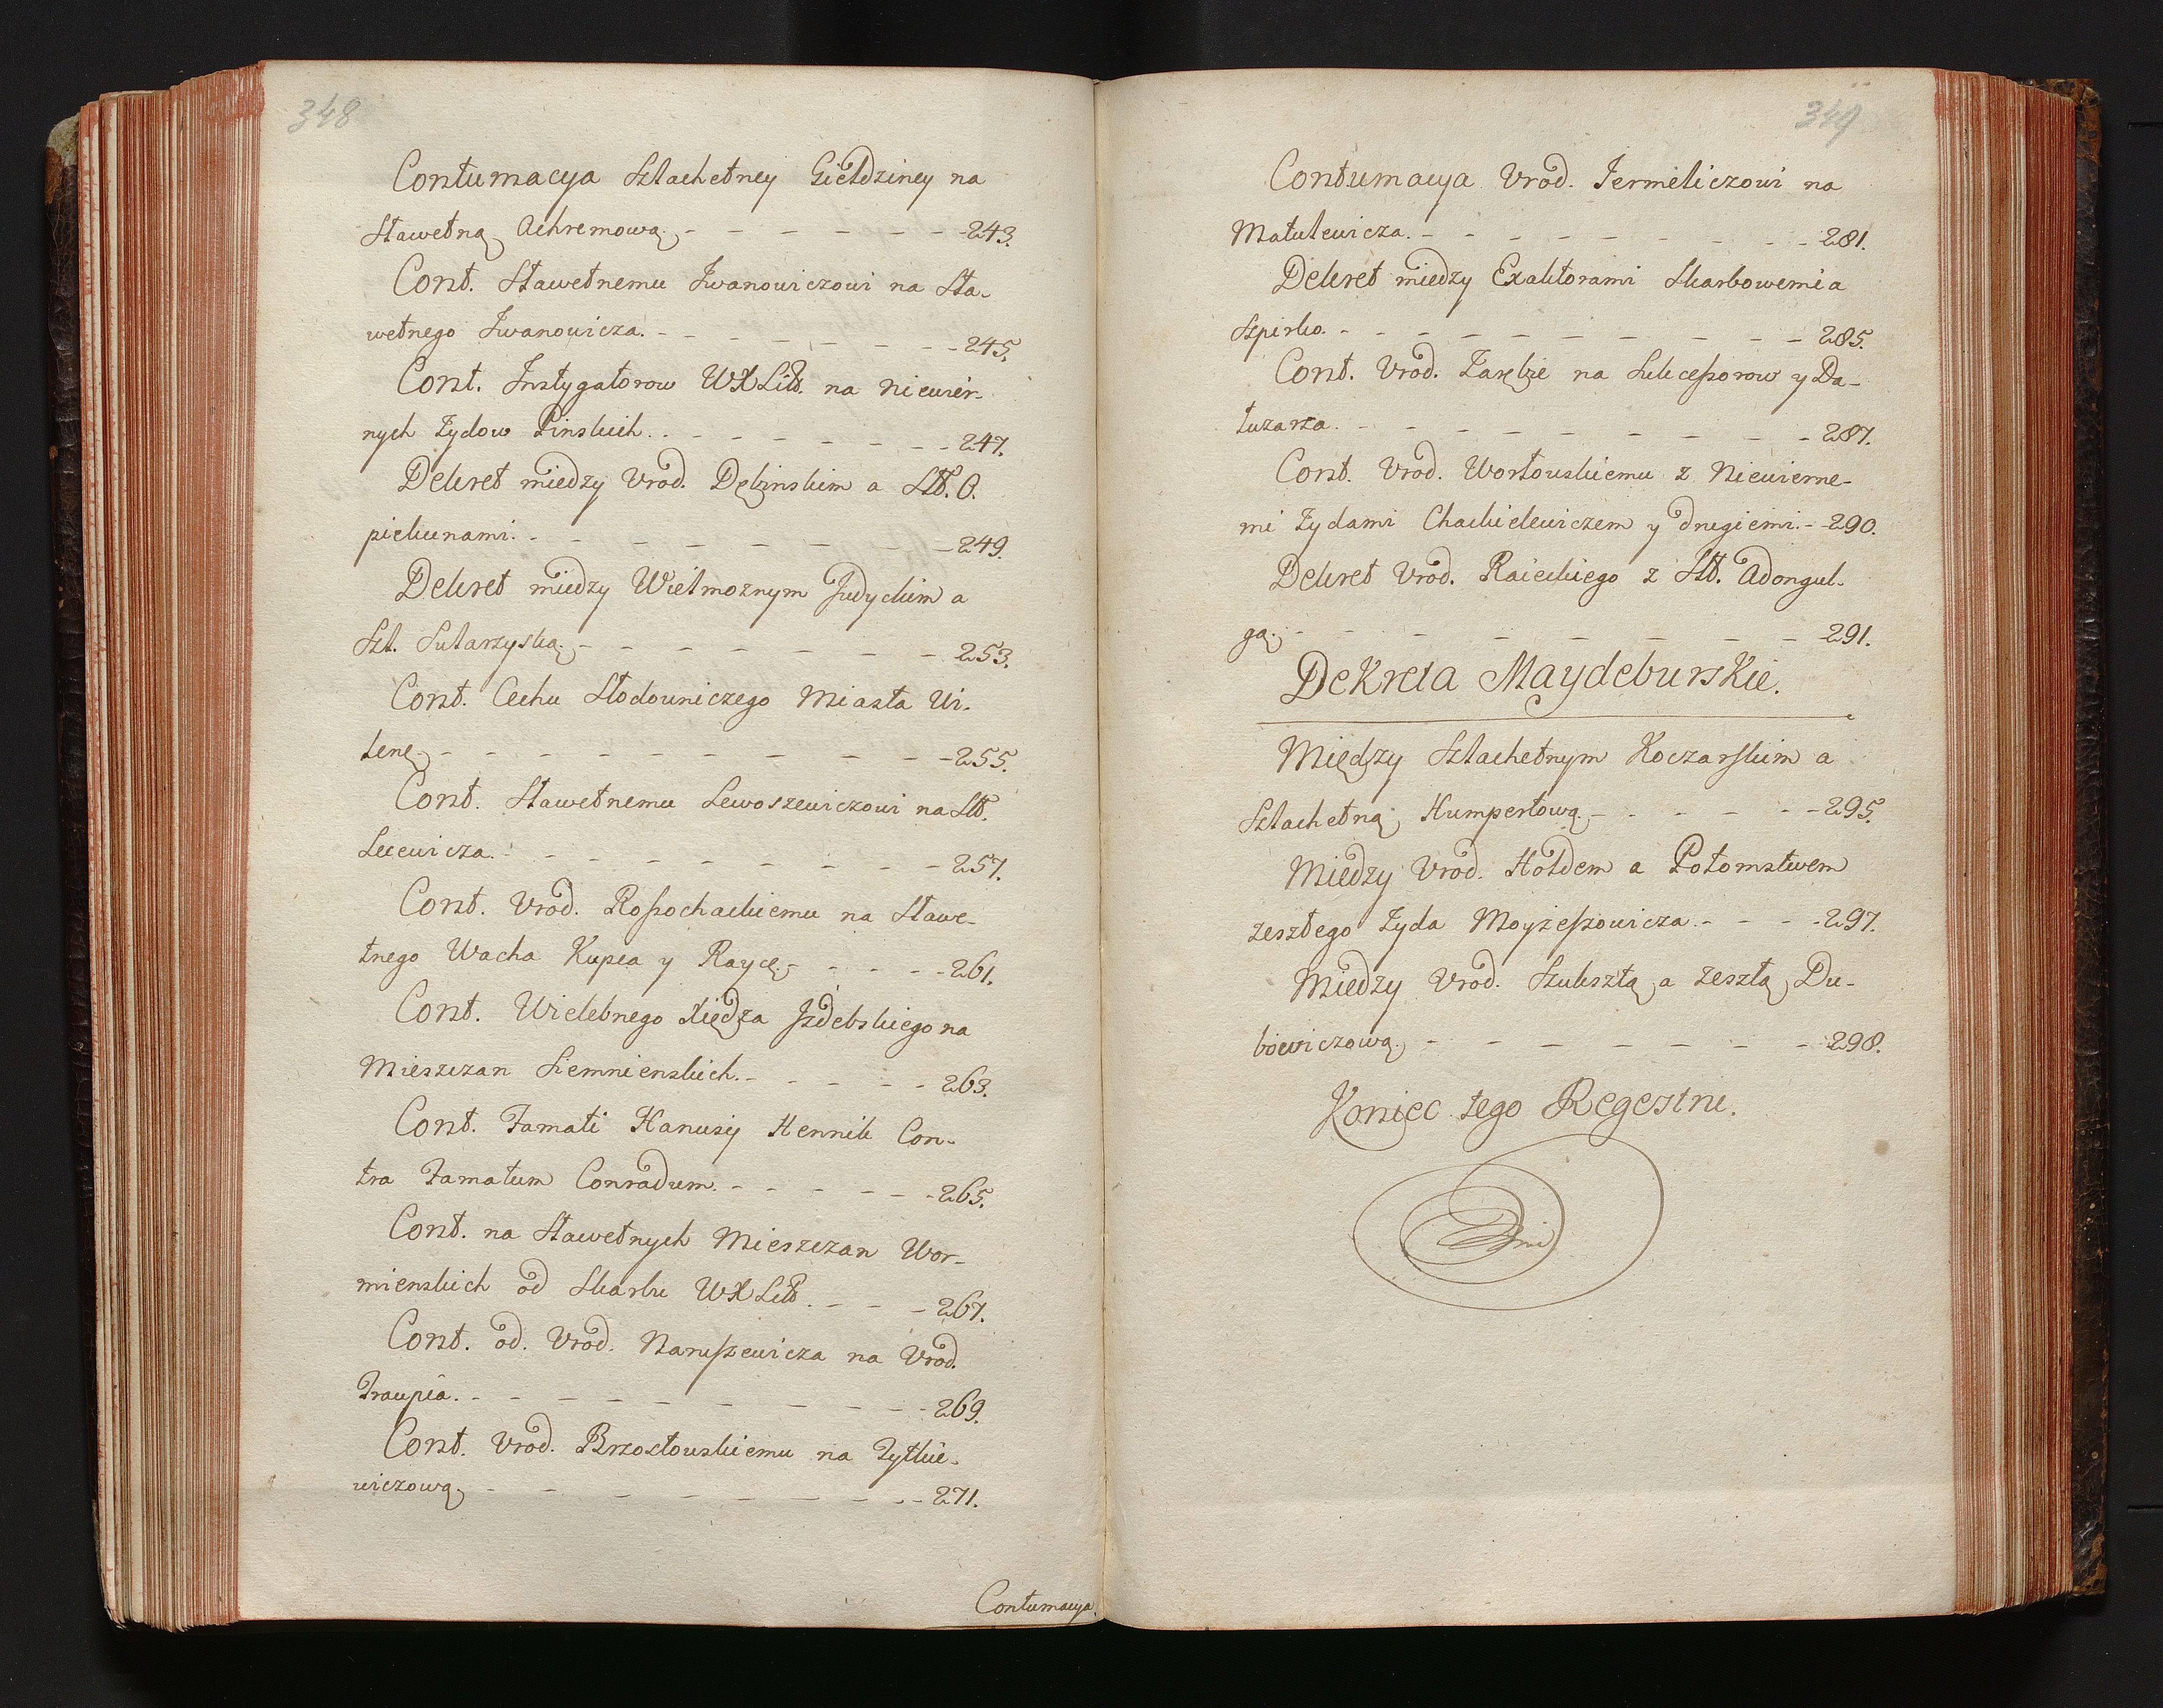 348
Contumacya Szlachetney Giełdziney na
sławetną Achremową. - - - - - - 243.
Cont. Sławetnemu Iwanowiczowi na Sła-
wetnego Iwanowicza. - - - - - - - 245.
Cont. Instygatorow WXLitt. na niewier-
nych Żydow Pinskich. - - - - - - - 247.
Dekret między Urod. Dębinskim a Sltt. O.
piekunami. - - - - - - - 249.
Dekret między Wielmoznym Judyckim a
Szl. Sutarzyską. - - - - - - - 253.
Cont. Cechu Słodowniczego Miasta Wi-
lenę - - - - - - - - - 255.
Cont. Sławetnemu Lewoszewiczowi na Sltt.
Lecewicza. - - - - - - - - 257.
Cont. Urod. Roszochackiemu na Sławe-
tnego Wacha Kupca y Raycę. - - - - 261.
Cont. Wielebnego Xiędza Jzdebskiego na
Mieszczan Siemnienskich. - - - - - 263.
Cont. Famati Hanusij Hennik Con-
tra Famatum Conradum. - - - - - - 265.
Cont. na Sławetnych Mieszczan Wor-
mienskich od Skarbu WXLitt. - - - 267.
Cont. od. Urod. Naruszewicza na Urod.
Traupia. - - - - - - - - - 269.
Cont. Urod. Brzostowskiemu na Tytkie-
wiczową. - - - - - - - - 271.
Contumacya.
349
Contumacya Urod. Jermeliczowi na
Matulewicza. - - - - - - - - 281.
Dekret między Exaktorami Skarbowemi a
Szpirko. - - - - - - - - - 285.
Cont. Urod. Zarębie na Sukceszorow y Da-
tuzarza. - - - - - - - - 287.
Cont. Urod. Worłowskiemu z Niewierne-
mi Żydami Chackielewiczem y drugiemi. - 290.
Dekret Urod. Raieckiego z Sltt. Adongul-
gą. - - - - - - - - 291.
Dekreta Maydeburskie.
Między Szlachetnym Koczarskim a
Szlachetną Humpertową. - - - - - 295.
Między Urod. Hołdem a Potomstwem
zeszłego Żyda Moyżeszowicza. - - - - 297.
Między Urod. Szuksztą a zeszłą Du-
bowiczową. - - - - - - - - 298.
Koniec tego Regestru.